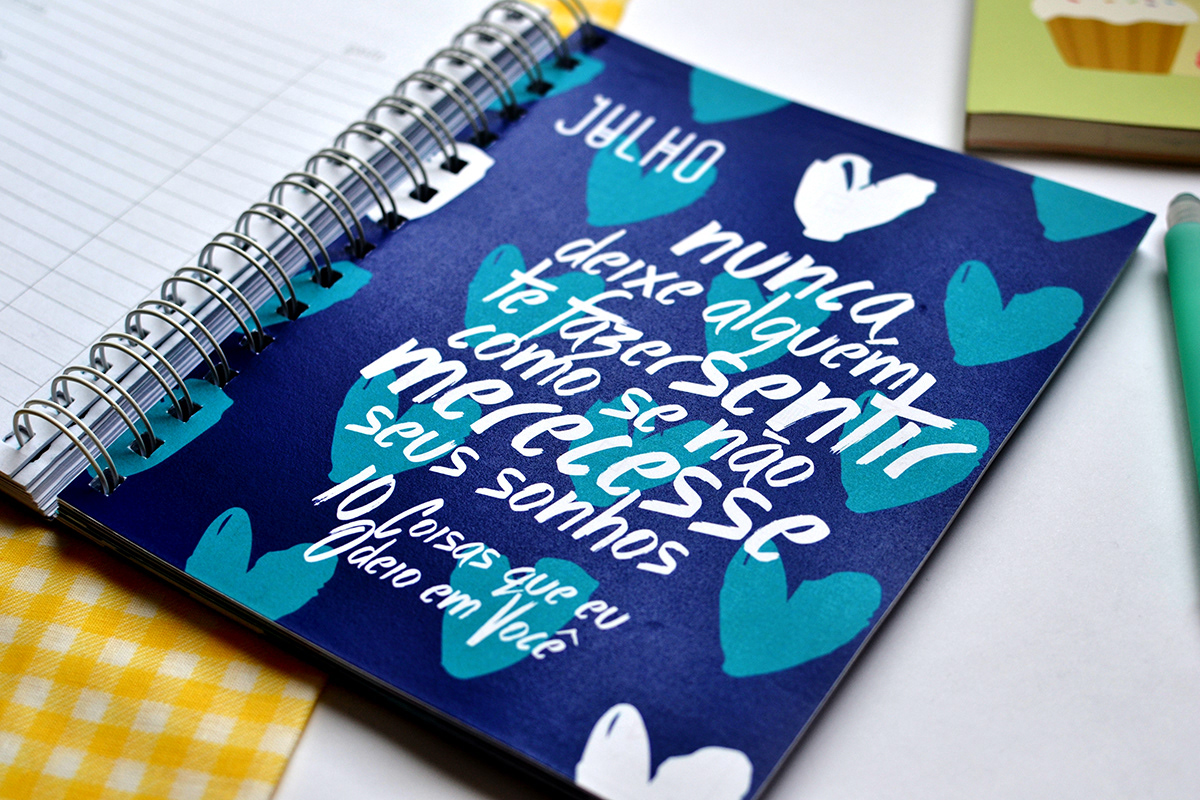 JULHO
nunca
deixe alguém
te fazer sentir
como se não
merecesse
seus sonhos
10 Coisas que eu
Odeio em Você